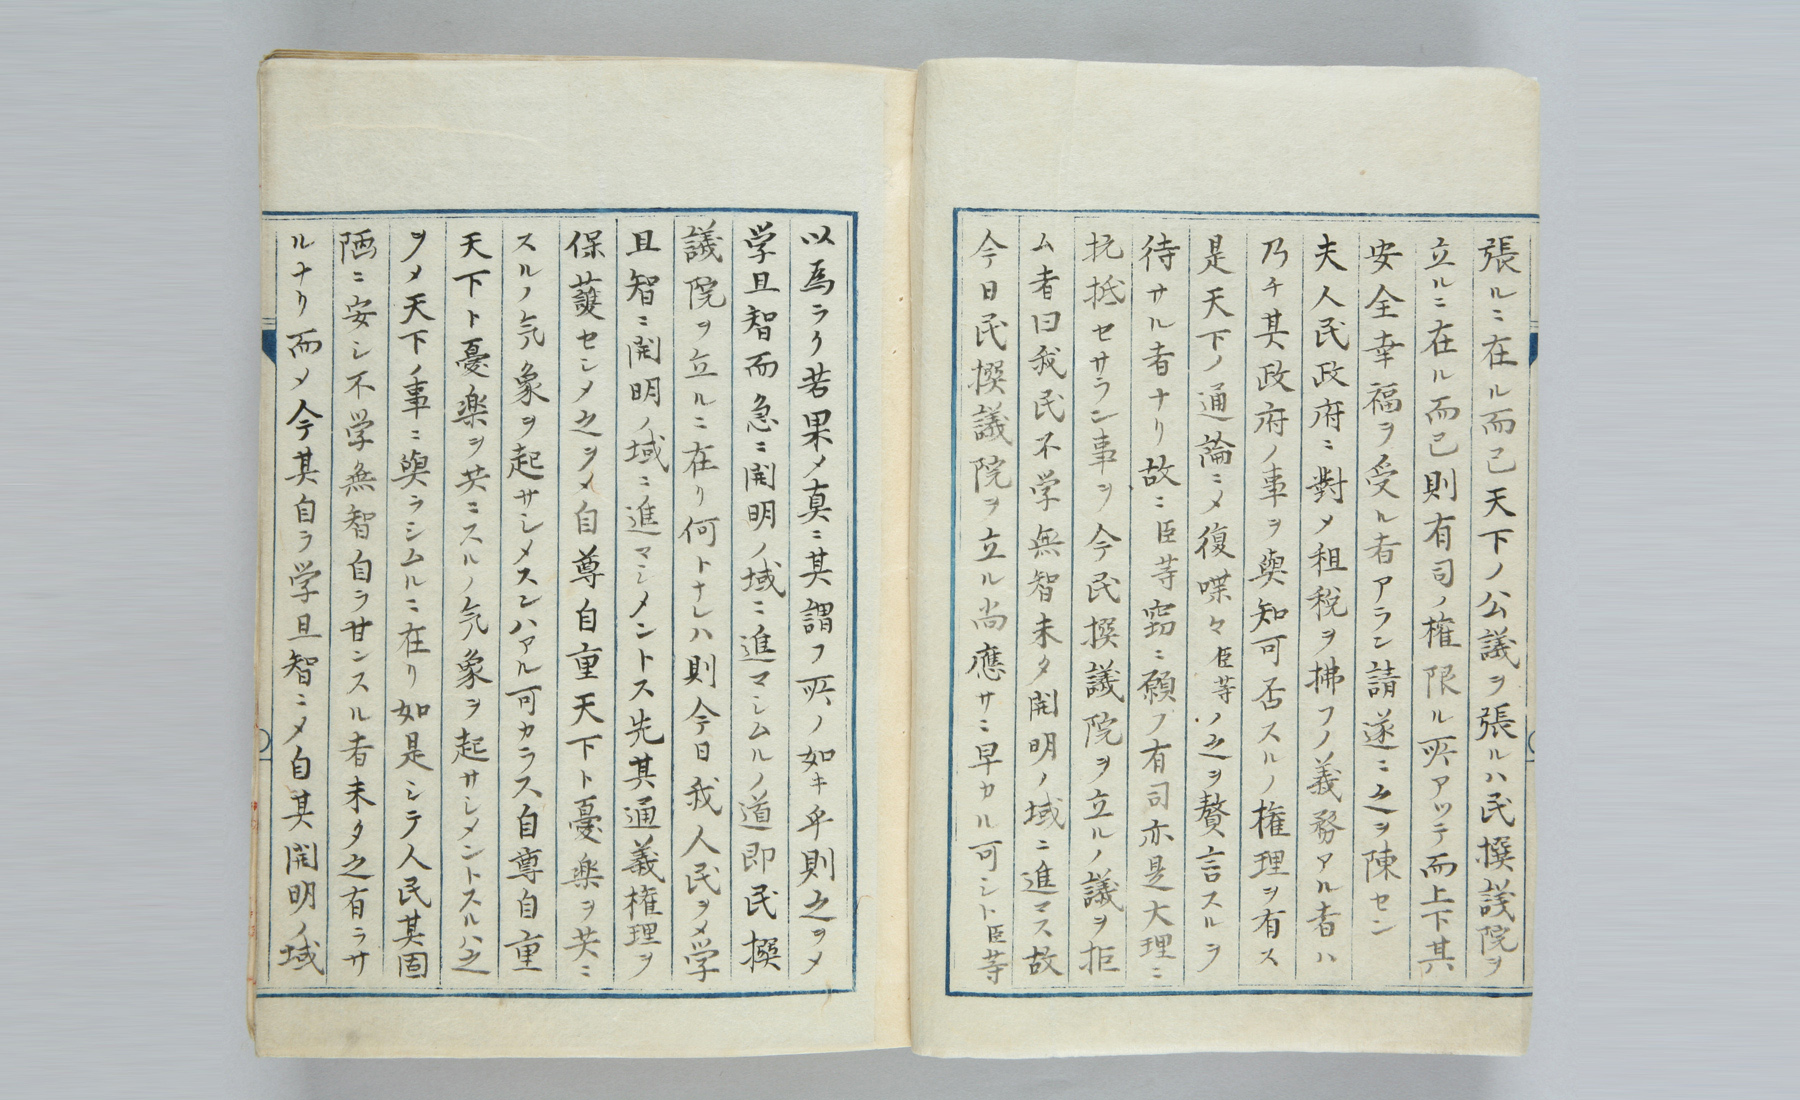 張ルニ在ル而已天下ノ公議ヲ張ルハ民撰議院ヲ
立ルニ在ル而已則有司ノ権限ル所アツテ而上下其
安全幸福ヲ受ル者アラン請遂ニ之ヲ陳セン
夫人民政府ニ對メ租税ヲ拂フノ義務アル者ハ
乃チ其政府ノ事ヲ與知可否スルノ権理ヲ有ス
是天下ノ通論ニメ復喋々臣等ノ之ヲ贅言スルヲ
待サル者ナリ故ニ臣等窃ニ願フ有司亦是大理ニ
抗抵セサラン事ヲ今民撰議院ヲ立ルノ議ヲ拒
ム者曰我民不学無智未タ開明ノ域ニ進マス故
今日民撰議院ヲ立ル尚應サニ早カル可シト臣等
以為ラク若果メ真ニ其謂フ所ノ如キ乎則之ヲメ
学且智而急ニ開明ノ域ニ進マシムルノ道即民撰
議院ヲ立ルニ在リ何トナレハ則今日我人民ヲメ学
且智ニ開明ノ域ニ進マシメントス先其通義権理ヲ
保護セシメ之ヲメ自尊自重天下ト憂楽ヲ共ニ
スルノ気象ヲ起サシメスンハアル可カラス自尊自重
天下ト憂楽ヲ共ニスルノ気象ヲ起サシメントスルハ之
ヲメ天下ノ事ニ與ラシムルニ在リ如是シテ人民其固
陋ニ安シ不学無智自ラ甘ンスル者未タ之有ラサ
ルナリ而メ今其自ラ学且智ニメ自其開明ノ域